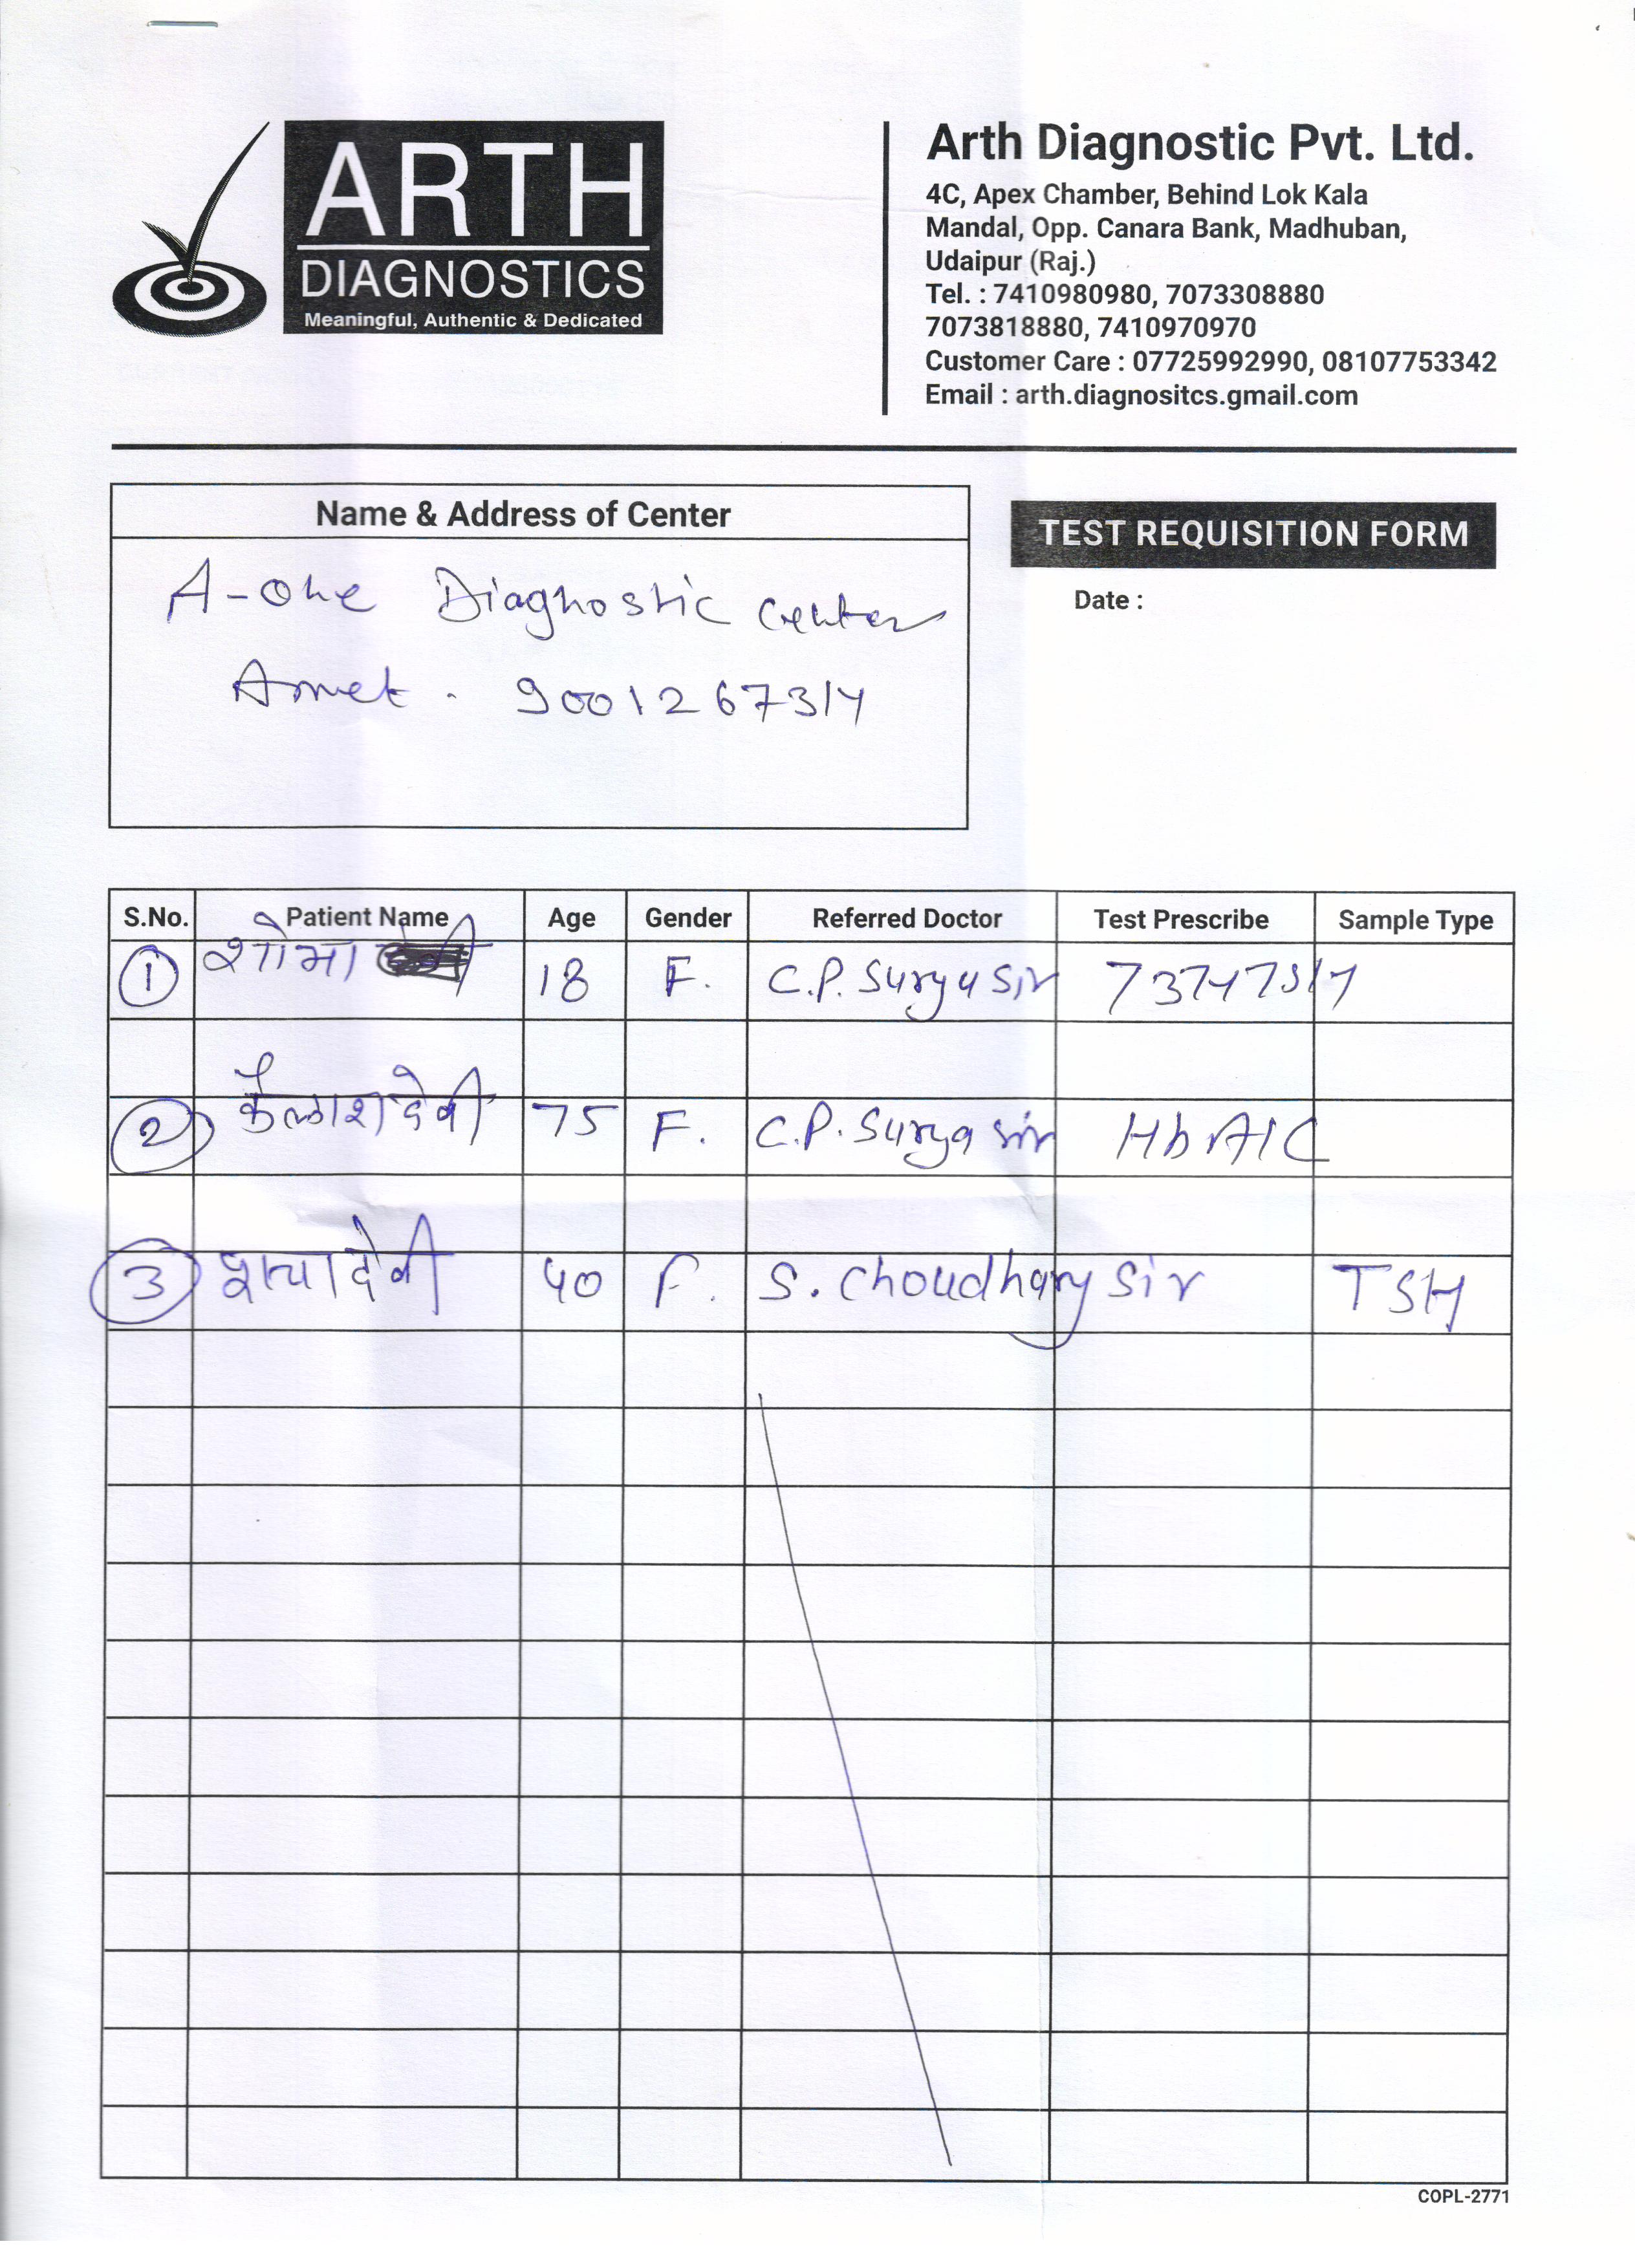 ARTH
DIAGNOSTICS
Meaningful, Authentic & Dedicated
Arth Diagnostic Pvt. Ltd.
4C, Apex Chamber, Behind Lok Kala
Mandal, Opp. Canara Bank, Madhuban,
Udaipur (Raj.)
Tel. : 7410980980, 7073308880
7073818880, 7410970970
Customer Care : 07725992990, 08107753342
Email : arth.diagnositcs.gmail.com
Name & Address of Center
A-One Diagnostic Center
Amet - 9001267314
TEST REQUISITION FORM
Date :
S.No. Patient Name Age Gender Referred Doctor Test Prescribe Sample Type
1 शोभा 18 F. C.P. Surya Sir
2 कैलाश देवी 75 F. C.P. Surya Sir HbA1C
3 देवी 40 F. S. Choudhary Sir TSH
COPL-2771